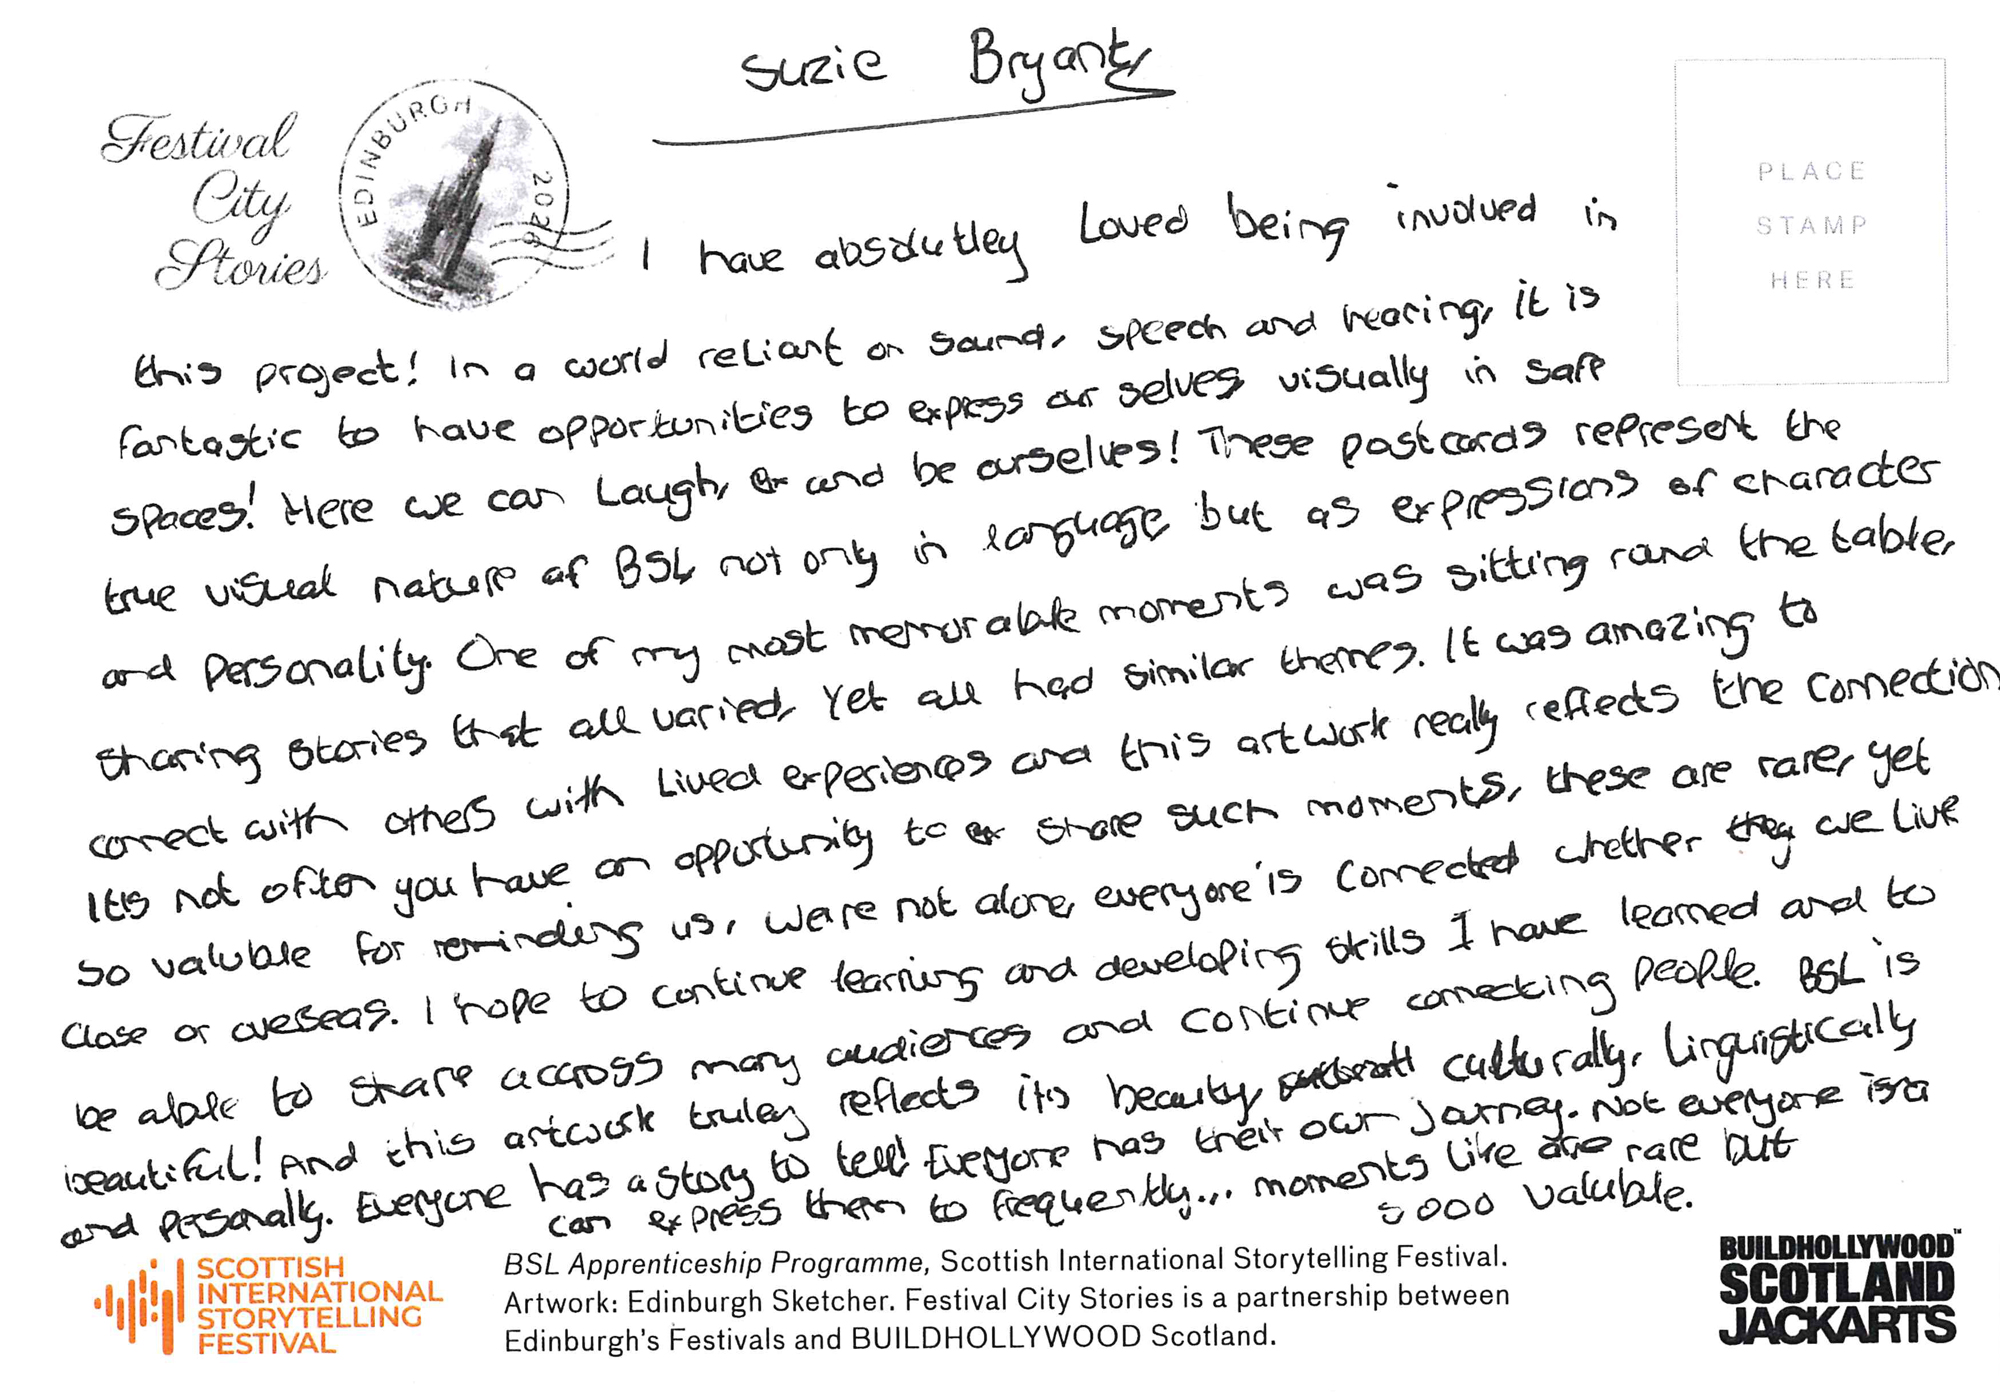 Suzie Bryant
Festival
City
Stories
EDINBURGH 2020
PLACE
STAMP
HERE
I have absolutley Loved being involved in
this project! In a world reliant on sound, speech and hearing, it is
fantastic to have opportunities to express our selves visually in safe
spaces! Here we can Laugh, and be ourselves! These postcards represent the
true visual nature of BSL, not only in language but as expressions of character
and Personality. One of my most memorable moments was sitting round the table,
sharing stories that all varied, Yet all had similar themes. It was amazing to
connect with others with Lived experiences and this artwork really reflects the connection
It's not often you have an opportunity to share such moments, these are rare, yet
so valuble for reminding us, we're not alone, everyone's connected whether they we Live
Close or overseas. I hope to continue learning and developing skills I have learned and to
be able to share accross many audiences and continue connecting people. BSL is
beautiful! And this artwork truley reflects its beauty culturally, Linguistically
and Personally. Everyone has a story to tell! Everyone has their own journey. Not everyone is a
can express them to frequently... moments like are rare but
sooo valuble.
SCOTTISH
INTERNATIONAL
STORYTELLING
FESTIVAL
BSL Apprenticeship Programme, Scottish International Storytelling Festival.
Artwork: Edinburgh Sketcher. Festival City Stories is a partnership between
Edinburgh's Festivals and BUILDHOLLYWOOD Scotland.
BUILDHOLLYWOOD™
SCOTLAND
JACKARTS